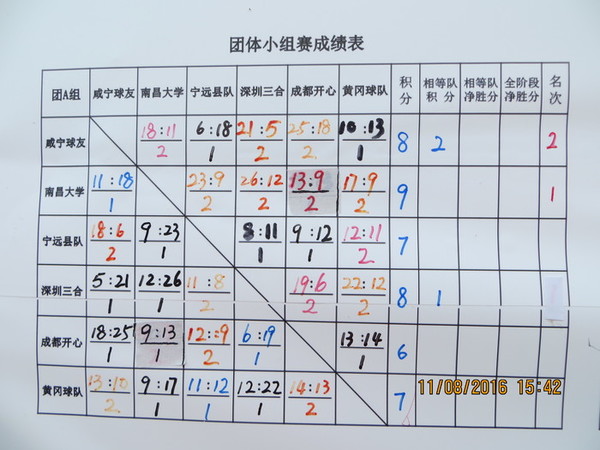 团体小组赛成绩表
团A组 咸宁球友 南昌大学 宁远县队 深圳三合 成都开心 黄冈球队 积分 相等队积分 相等队净胜分 全阶段净胜分 名次
咸宁球友 18:11 6:18 21:5 25:18 10:13 8 2 2
2 1 2 2 1
南昌大学 11:18 23:9 26:12 13:9 17:9 9 1
1 2 2 2 2
宁远县队 18:6 9:23 8:11 9:12 12:11 7
2 1 1 1 2
深圳三合 5:21 12:26 11:8 19:6 22:12 8 1
1 1 2 2 2
成都开心 18:25 9:13 12:9 6:19 13:14 6
1 1 2 1 1
黄冈球队 13:10 9:17 11:12 12:22 14:13 7
2 1 1 1 2
11/08/2016 15:42